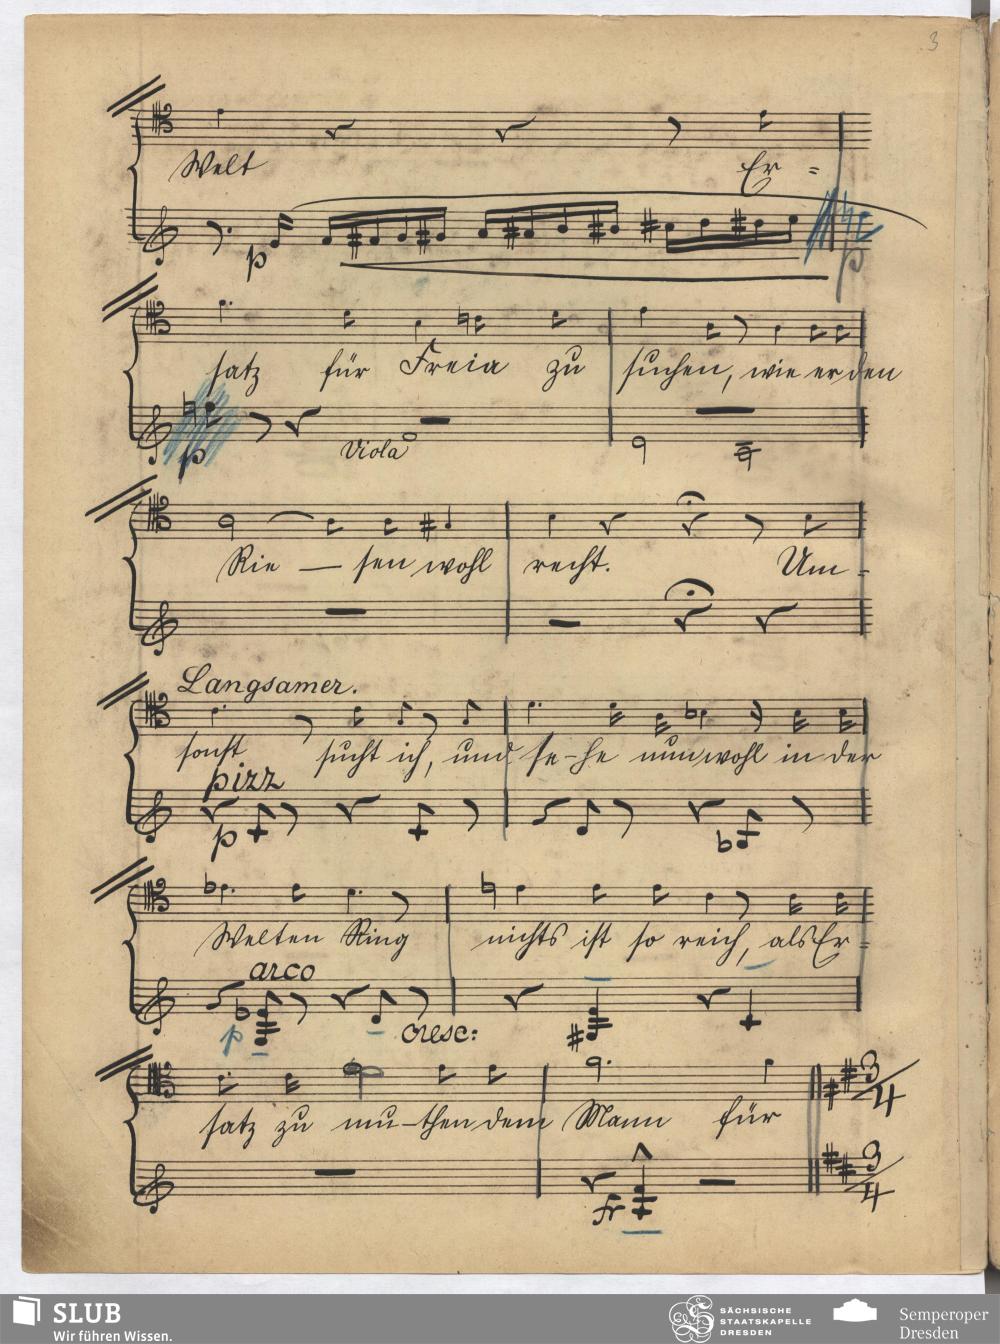 3
Welt Er=
p
p
satz für Freia zu suchen, wie er den
p Viola
Rie — sen wohl recht. Um=
Langsamer.
sonst sucht ich, und se-he nun wohl in der
pizz
p
Welten Ring nichts ist so reich, als Er=
arco
p cresc:
3/4
satz zu mu-then dem Mann für
3/4
fr
SLUB
Wir führen Wissen.
SÄCHSISCHE
STAATSKAPELLE
DRESDEN
Semperoper
Dresden